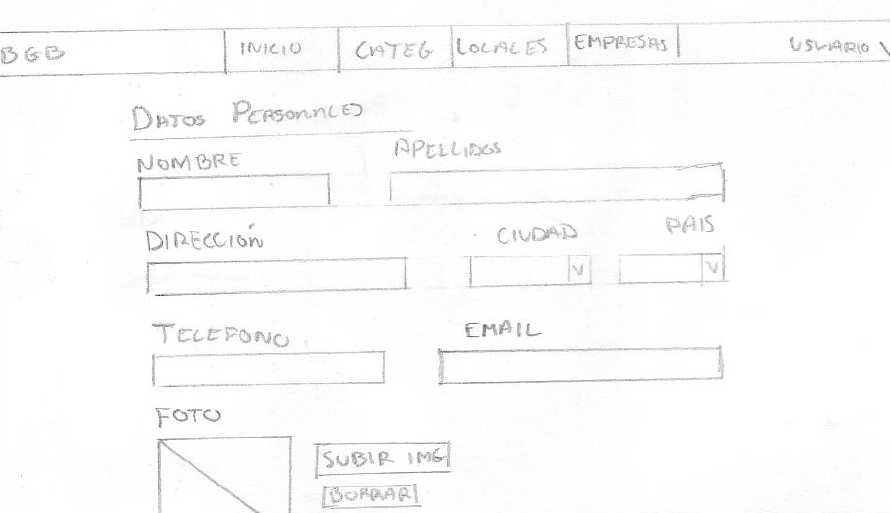 BGB INICIO CATEG LOCALES EMPRESAS USUARIO V
DATOS PERSONALES
NOMBRE APELLIDOS
DIRECCIÓN CIUDAD PAIS
V V
TELEFONO EMAIL
FOTO
SUBIR IMG
BORRAR